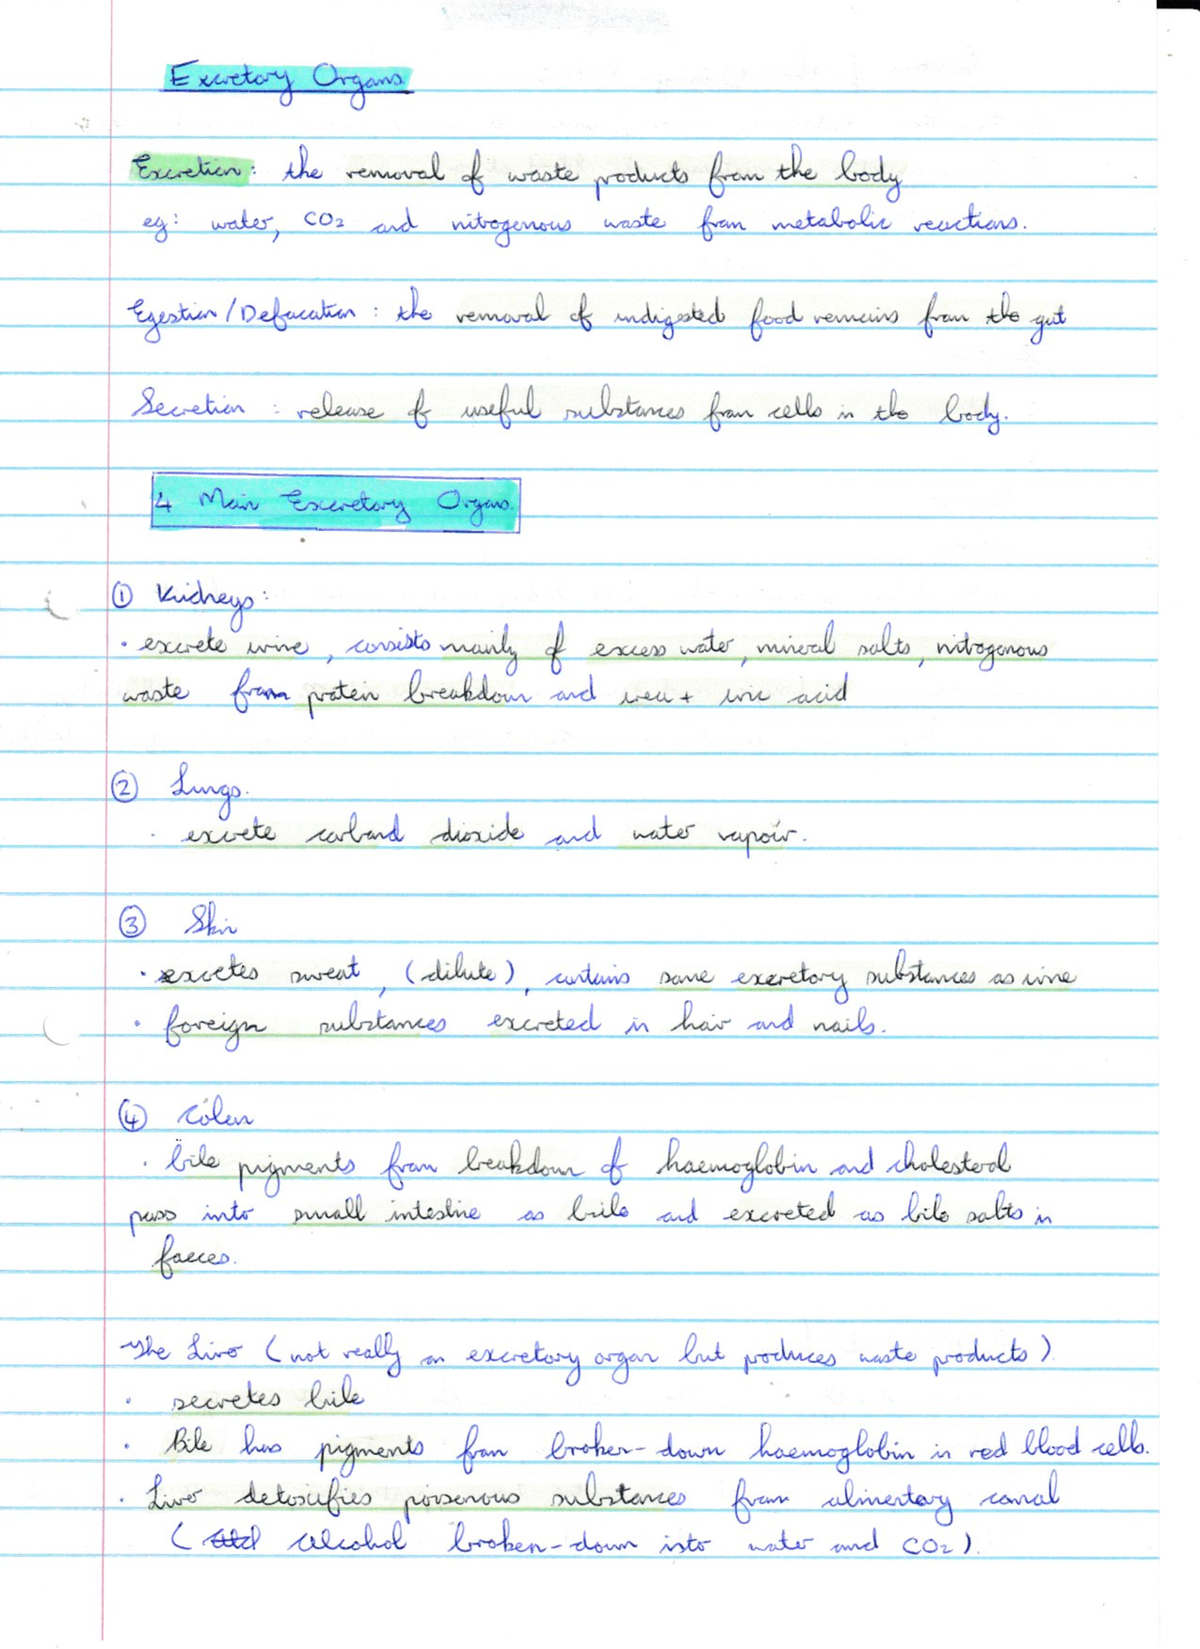 Excretory Organs
Excretion: the removal of waste products from the body
eg: water, CO2 and nitrogenous waste from metabolic reactions.
Egestion/Defacation: the removal of undigested food remains from the gut
Secretion: release of useful substances from cells in the body.
4 Main Excretory Organs.
① Kidneys:
• excrete urine, consists mainly of excess water, mineral salts, nitrogenous
waste from protein breakdown and urea + uric acid
② Lungs.
• excrete carband dioxide and water vapour.
③ Skin
• excretes sweat, (dilute), contains same excretory substances as urine
• foreign substances excreted in hair and nails.
④ Colon
• bile pigments from breakdown of haemoglobin and cholesterol
pass into small intestine as bile and excreted as bile salts in
faeces.
The Liver (not really an excretory organ but produces waste products)
• secretes bile
• Bile has pigments from broken-down haemoglobin in red blood cells.
• Liver detoxifies poisonous substances from alimentary canal
( alcohol broken-down into water and CO2).